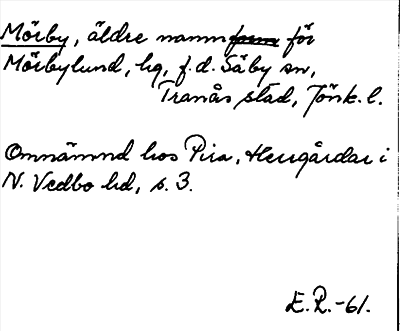 Mörby, äldre namn för
Mörbylund, hg, f.d. Säby sn,
Tranås stad, Jönk. l.
Omnämnd hos Pira, Herrgårdar i
N. Vedbo hd, s. 3.
E.R.-61.